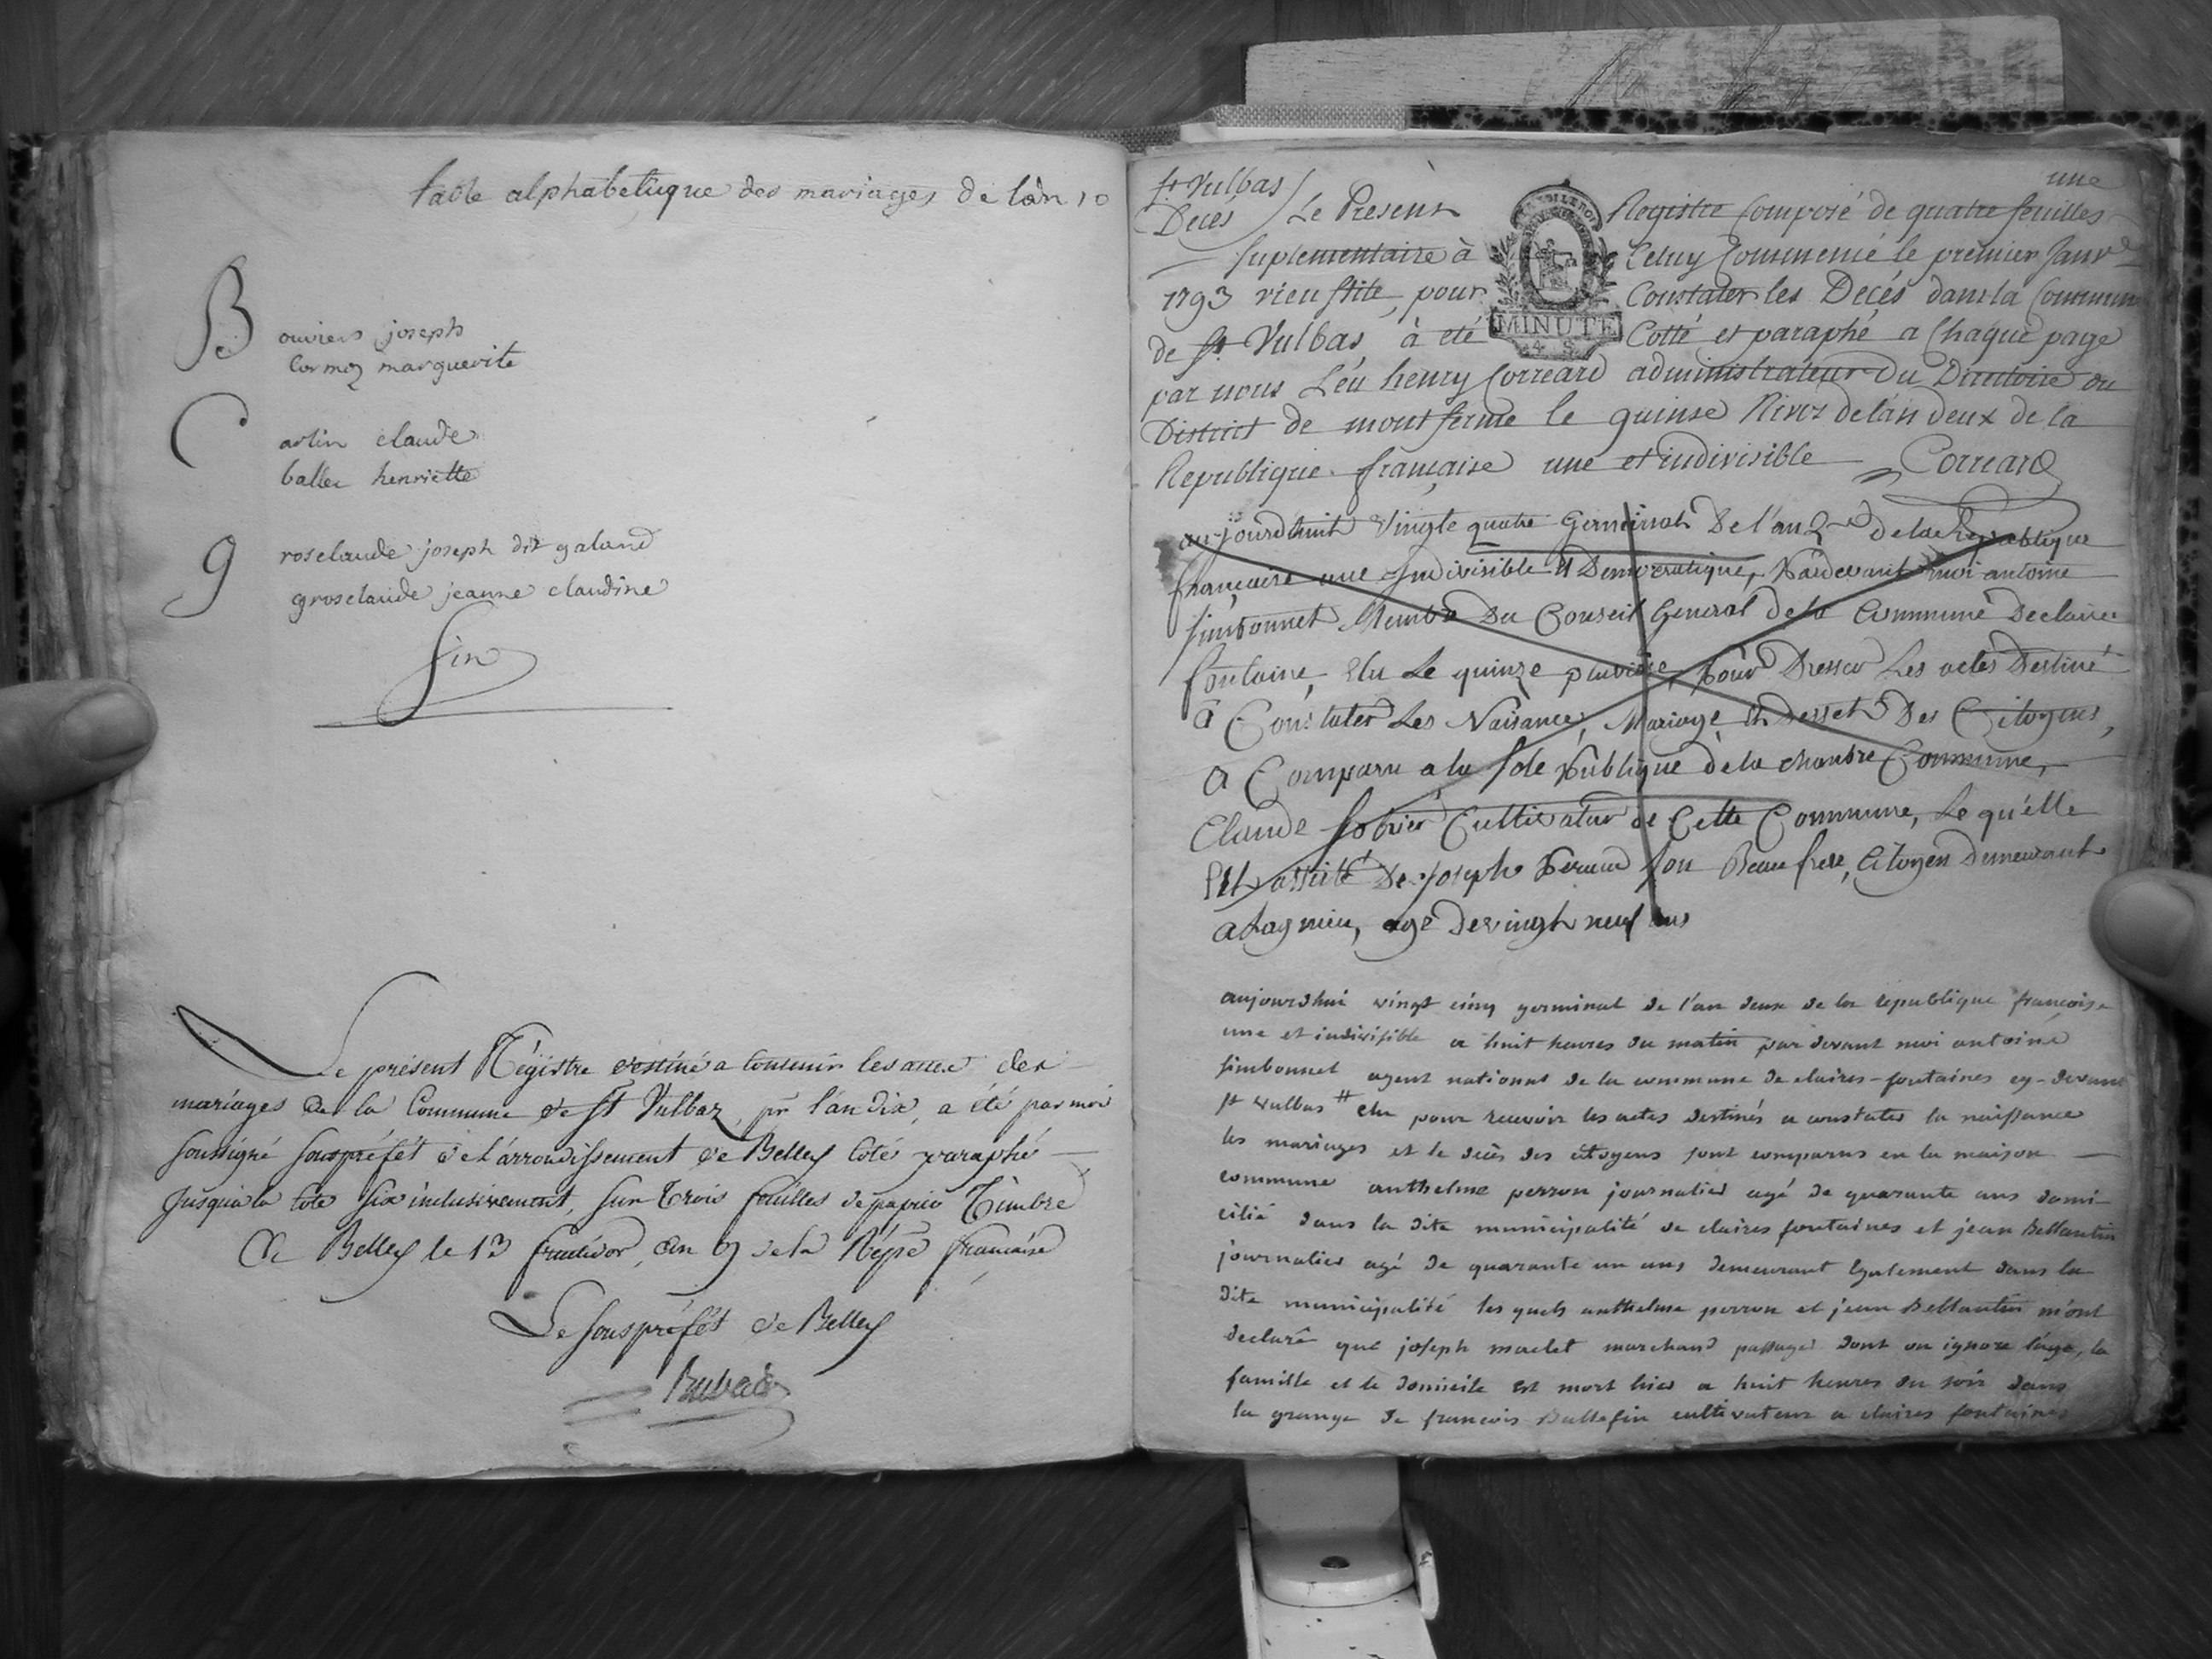 table alphabetique des mariages de l'an 10
B ouviers joseph
Cormoz marguerite
C arlin claude
ballec henriette
g roselaude joseph dit galand
groselaude jeanne claudine
fin
Le présent Régistre destiné a contenir les actes des
mariages de la Commune de St Vulbaz, pr l'an dix, a été par moi
soussigné souspréfét de l'arrondissement de Belley coté, paraphé
jusqu'a la cote six inclusivement, sur trois feuilles de papier Timbré
A Belley le 13 fructidor, an 9 de la Répe française
Le souspréfét de Belley
une
St Vulbas
Decés
Le Present Registre Composé de quatre feuilles
suplementaire à Celuy Commencé le premier Janvr
1793 vieu stile, pour Constater les Decés dans la Commune
de St Vulbas, à eté Cotté et paraphé a Chaque page
par nous Léu henry Correard administrateur Du Directoire du
District de mont ferme le quinse Nivoz de l'an Deux de la
Republique française une et indivisible Correard
MINUTE
4 S
aujourdhuit vingte quatre Germinal De l'an 2 De la Republique
française une Indivisible et Democratique, Pardevant moi antoine
simbonnet Membre Du Conseil General de la Commune De claire
fontaine, Elu Le quinze pluviose, pour Dresser Les actes Destiné
a Constater Les Naisance, Mariage, et Desset Des Citoyens,
a Comparu a la sale publique de la chanbre Commune,
Claude Cultivateur de Cette Commune, Le qu'elle
Est assisté De joseph son Beau frere, Citoyen Demeurant
a Lagnieu, agé De vingt neuf ans
aujourdhui vingt cinq germinal de l'an deux de la republique françoise
une et indivisible a huit heures du matin par devant moi antoine
simbonnet agent national de la commune de claires-fontaines cy-devant
st vulbas # elu pour recevoir les actes destinés a constater la naissance
les mariages et le decès des citoyens sont comparus en la maison
commune anthelme perron journalier agé de quarante ans domi-
cilié dans la dite municipalité de claires fontaines et jean Bellantin
journalier agé de quarante un ans demeurant egalement dans la
dite municipalité les quels anthelme perron et jean Bellantin m'ont
declaré que joseph maclet marchand passager dont on ignore l'age, la
famille et le domicile est mort hier a huit heures du soir dans
la grange de francois Ballefin cultivateur a claires fontaines